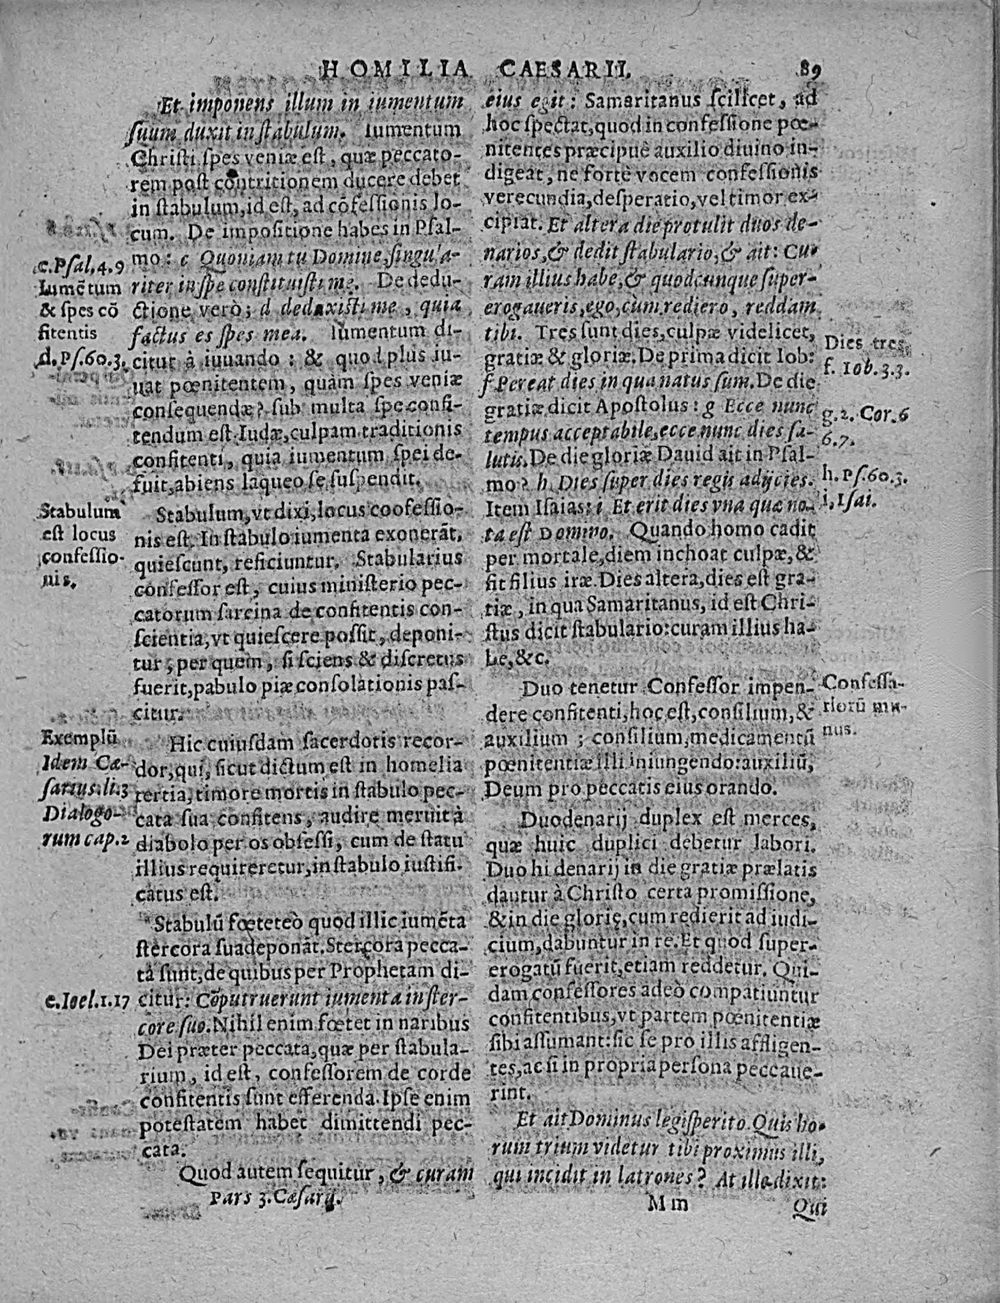 HOMILIA CAESARII. 89
Et imponens illum in iumentum
suum duxit in stabulum. Iumentum
Christi spes veniæ est, quæ peccato-
rem post contritionem ducere debet
in stabulum, id est, ad cõfessionis lo-
cum. De impositione habes in Psal-
mo: c Quoniam tu Domine, singula-
riter in spe constituisti me. De dedu-
ctione verò; d dedaxisti me, quia
factus es spes mea. Iumentum di-
citur à iuuando: & quod plus iu-
uat pœnitentem, quàm spes veniæ
consequendæ? sub multa spe confi-
tendum est. Iudæ, culpam traditionis
confitenti, quia iumentum spei de-
fuit, abiens laqueo se suspendit.
Stabulum, vt dixi, locus coofessio-
nis est. In stabulo iumenta exonerãt,
quiescunt, reficiuntur. Stabularius
confessor est, cuius ministerio pec-
catorum sarcina de confitentis con-
scientia, vt quiescere possit, deponi-
tur; per quem, si sciens & discretus
fuerit, pabulo piæ consolationis pas-
citur.
Hic cuiusdam sacerdotis recor-
dor, qui, sicut dictum est in homelia
tertia, timore mortis in stabulo pec-
cata sua confitens, audire meruit à
diabolo per os obsessi, cum de statu
illius requireretur, in stabulo iustifi-
catus est.
Stabulũ fœtet eò quod illic iumẽta
stercora sua deponãt. Stercora pecca-
ta sunt, de quibus per Prophetam di-
citur: Cõputruerunt iumenta in ster-
core suo. Nihil enim fœtet in naribus
Dei præter peccata, quæ per stabula-
rium, id est, confessorem de corde
confitentis sunt efferenda. Ipse enim
potestatem habet dimittendi pec-
cata.
Quod autem sequitur, & curam
Pars 3. Cæsarij.
c. Psal. 4. 9
Iumẽtum
& spes cõ
fitentis
d. Ps. 60. 3.
Stabulum
est locus
confessio-
nis.
Exemplũ
Idem Cæ-
sarius. li. 3
Dialogo-
rum cap. 2
e. Ioel. 1. 17
eius egit: Samaritanus scilicet, ad
hoc spectat, quod in confessione pœ-
nitentes præcipuè auxilio diuino in-
digeat, ne fortè vocem confessionis
verecundia, desperatio, vel timor ex-
cipiat. Et altera die protulit duos de-
narios, & dedit stabulario, & ait: Cu-
ram illius habe, & quodcunque super-
erogaueris, ego, cum rediero, reddam
tibi. Tres sunt dies, culpæ videlicet,
gratiæ & gloriæ. De prima dicit Iob:
f Pereat dies in qua natus sum. De die
gratiæ dicit Apostolus: g Ecce nunc
tempus acceptabile, ecce nunc dies sa-
lutis. De die gloriæ Dauid ait in Psal-
mo? h. Dies super dies regis adijcies.
Item Isaias: i Et erit dies vna quæ no-
ta est Domino. Quando homo cadit
per mortale, diem inchoat culpæ, &
fit filius iræ. Dies altera, dies est gra-
tiæ, in qua Samaritanus, id est Chri-
stus dicit stabulario: curam illius ha-
be, &c.
Duo tenetur Confessor impen-
dere confitenti, hoc est, consilium, &
auxilium; consilium, medicamentũ
pœnitentiæ illi iniungendo: auxiliũ,
Deum pro peccatis eius orando.
Duo denarij duplex est merces,
quæ huic duplici debetur labori.
Duo hi denarij in die gratiæ prælatis
dantur à Christo certa promissione,
& in die glorię, cum redierit ad iudi-
cium, dabuntur in re. Et quod super-
erogatũ fuerit, etiam reddetur. Qui-
dam confessores adeò compatiuntur
confitentibus, vt partem pœnitentiæ
sibi assumant: sic se pro illis affligen-
tes, ac si in propria persona peccaue-
rint.
Et ait Dominus legisperito. Quis ho-
rum trium videtur tibi proximus illi,
qui incidit in latrones? At ille dixit:
M m Qui
Dies tres
f. Iob. 3. 3.
g. 2. Cor. 6
6. 7.
h. Ps. 60. 3.
i. Isai.
Confessa-
riorũ mu-
nus.